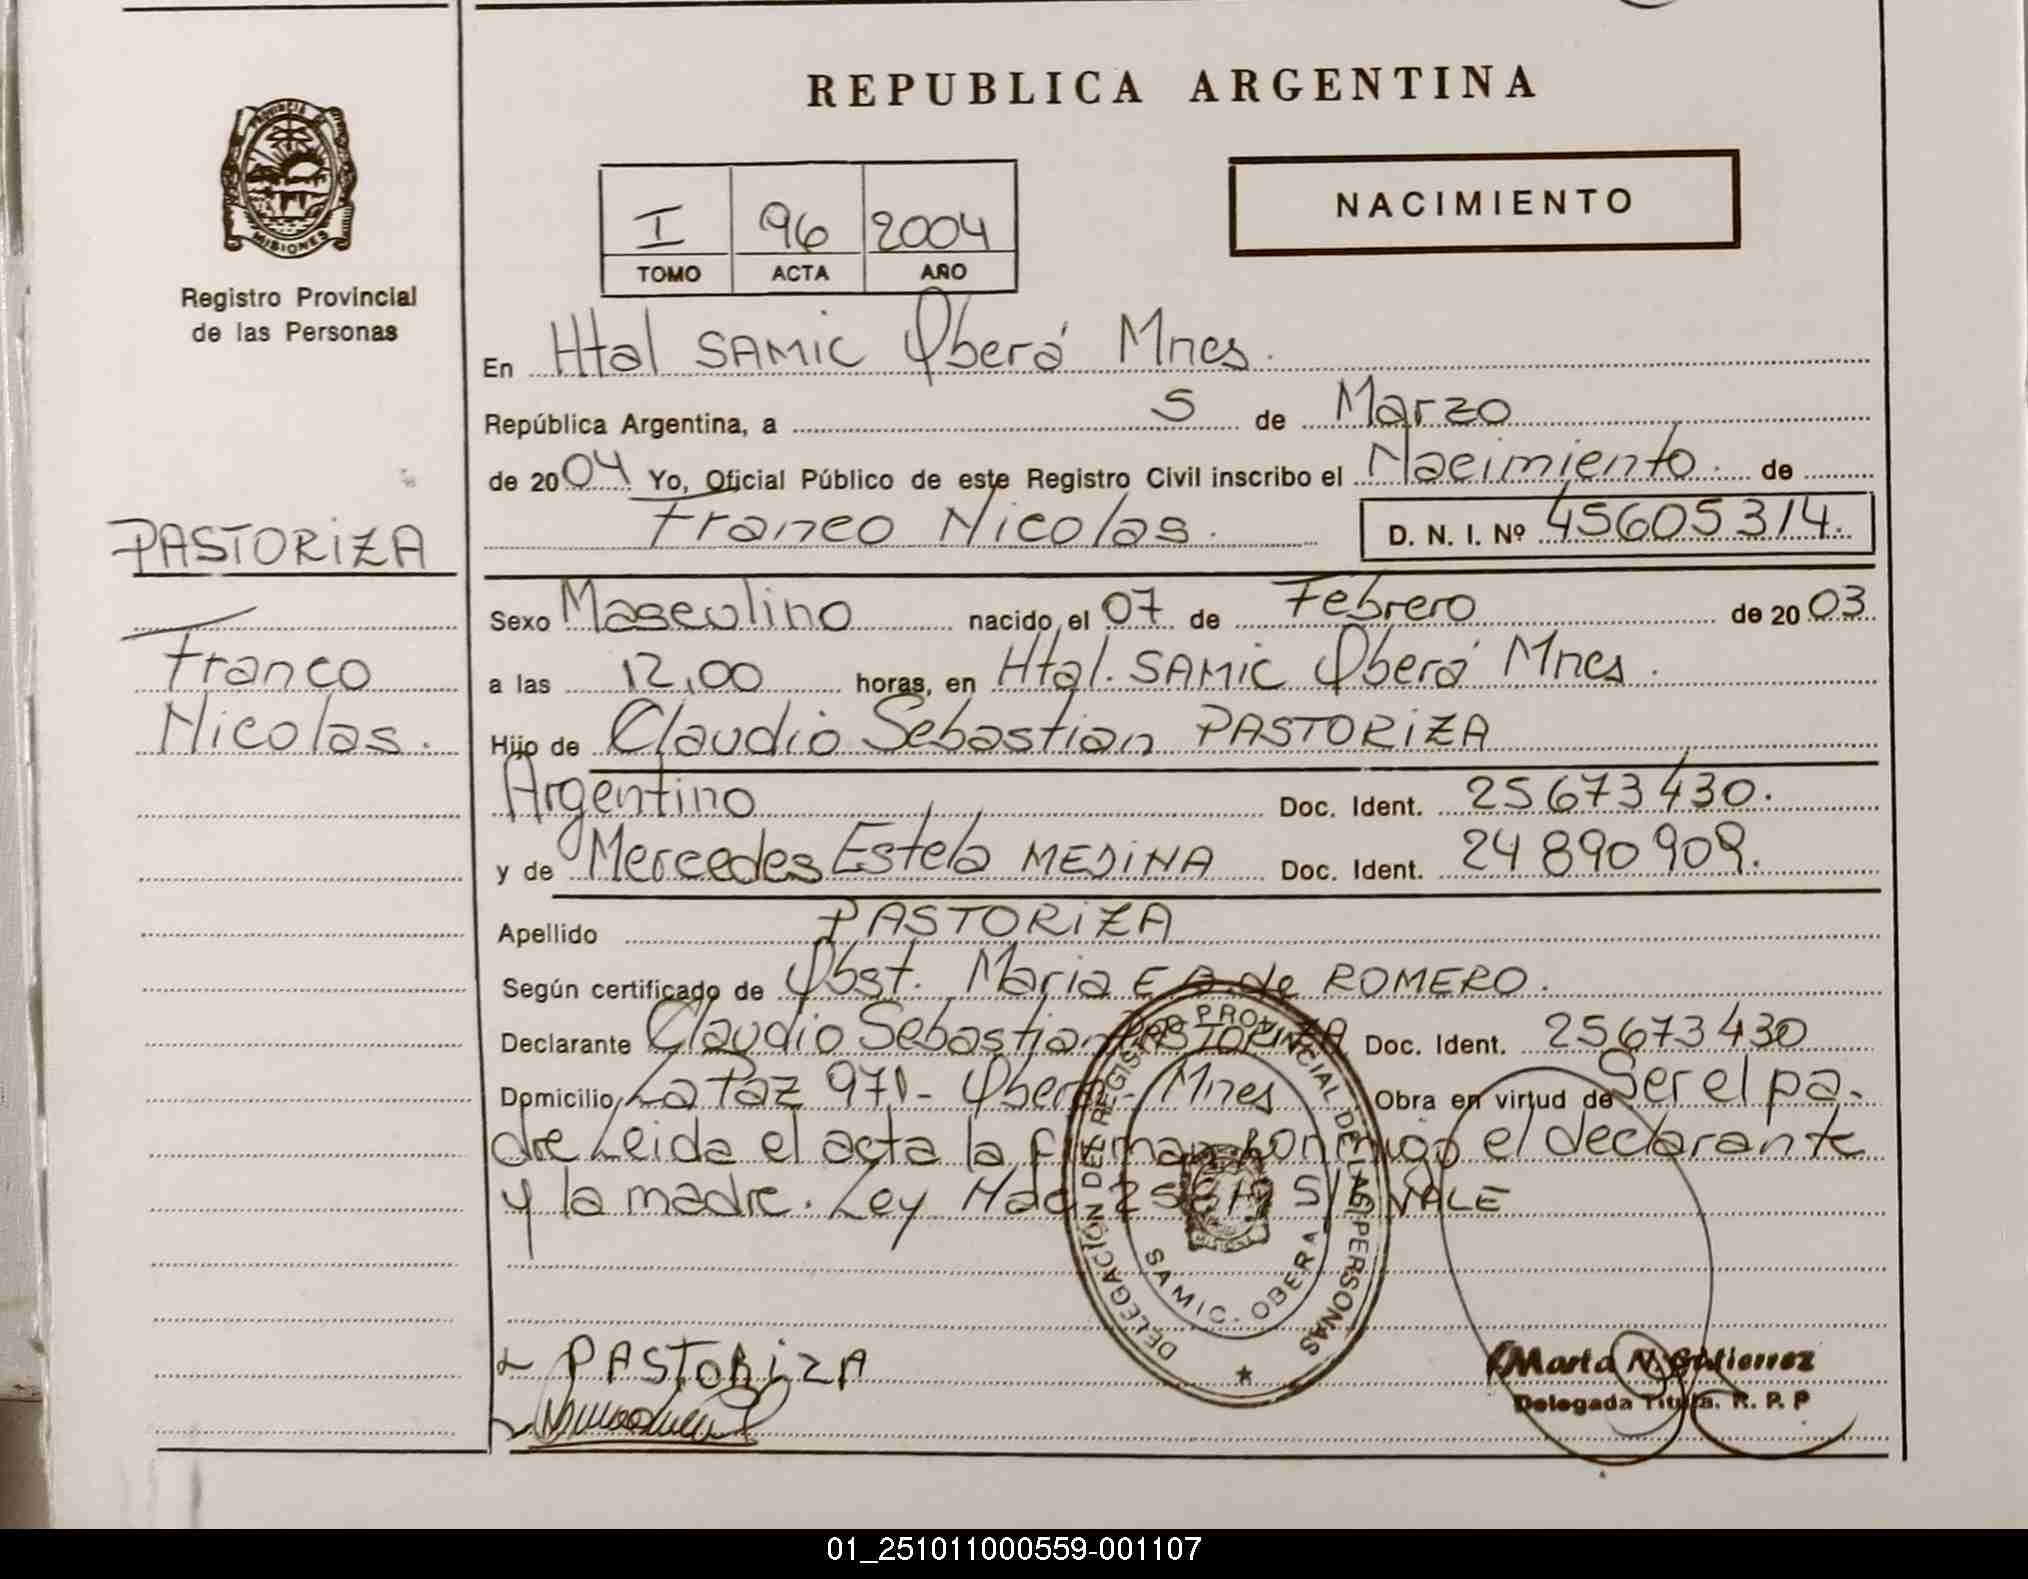 REPUBLICA ARGENTINA
PROVINCIA DE
MISIONES
Registro Provincial
de las Personas
NACIMIENTO
I 96 2004
TOMO ACTA AÑO
En Htal SAMIC Oberá Mnes.
República Argentina, a 5 de Marzo
de 2004 Yo, Oficial Público de este Registro Civil inscribo el Nacimiento. de
Franco Nicolas. D. N. I. Nº 45605314.
PASTORIZA
Franco
Nicolas.
Sexo Masculino nacido el 07 de Febrero de 2003
a las 12,00 horas, en Htal. SAMIC Oberá Mnes.
Hijo de Claudio Sebastian PASTORIZA
Argentino Doc. Ident. 25673430.
y de Mercedes Estela MEDINA Doc. Ident. 24890909.
Apellido PASTORIZA
Según certificado de Obst. Maria E B. de ROMERO.
Declarante Claudio Sebastian PASTORIZA Doc. Ident. 25673430
Domicilio La Paz 971- Oberá- Mnes Obra en virtud de Ser el pa-
dre Leida el acta la firman conmigo el declarante
y la madre. Ley VALE
DELEGACIÓN DEL REGISTRO PROVINCIAL DE LAS PERSONAS
SAMIC. OBERA
PASTORIZA
Marta N. Gutierrez
Delegada Titula. R. P. P
01_251011000559-001107